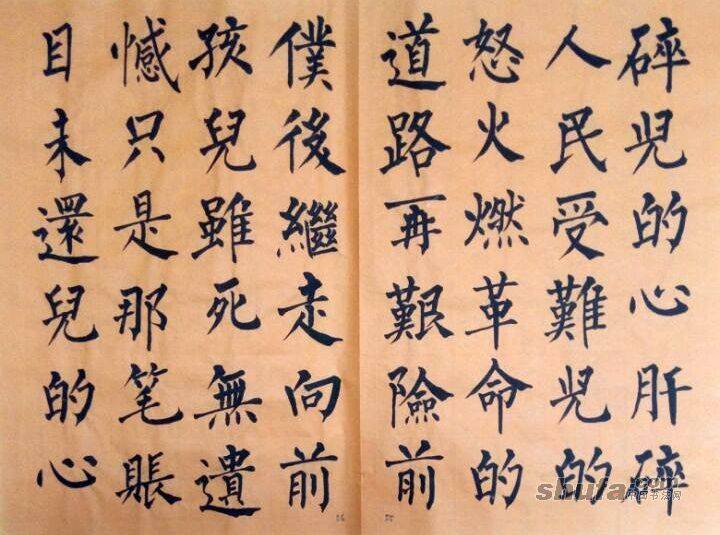 碎兒的心肝碎
人民受難兒的
怒火燃革命的
道路再艱險前
僕後繼走向前
孩兒雖死無遺
憾只是那笔賬
目未還兒的心
shufa.com
中国书法网